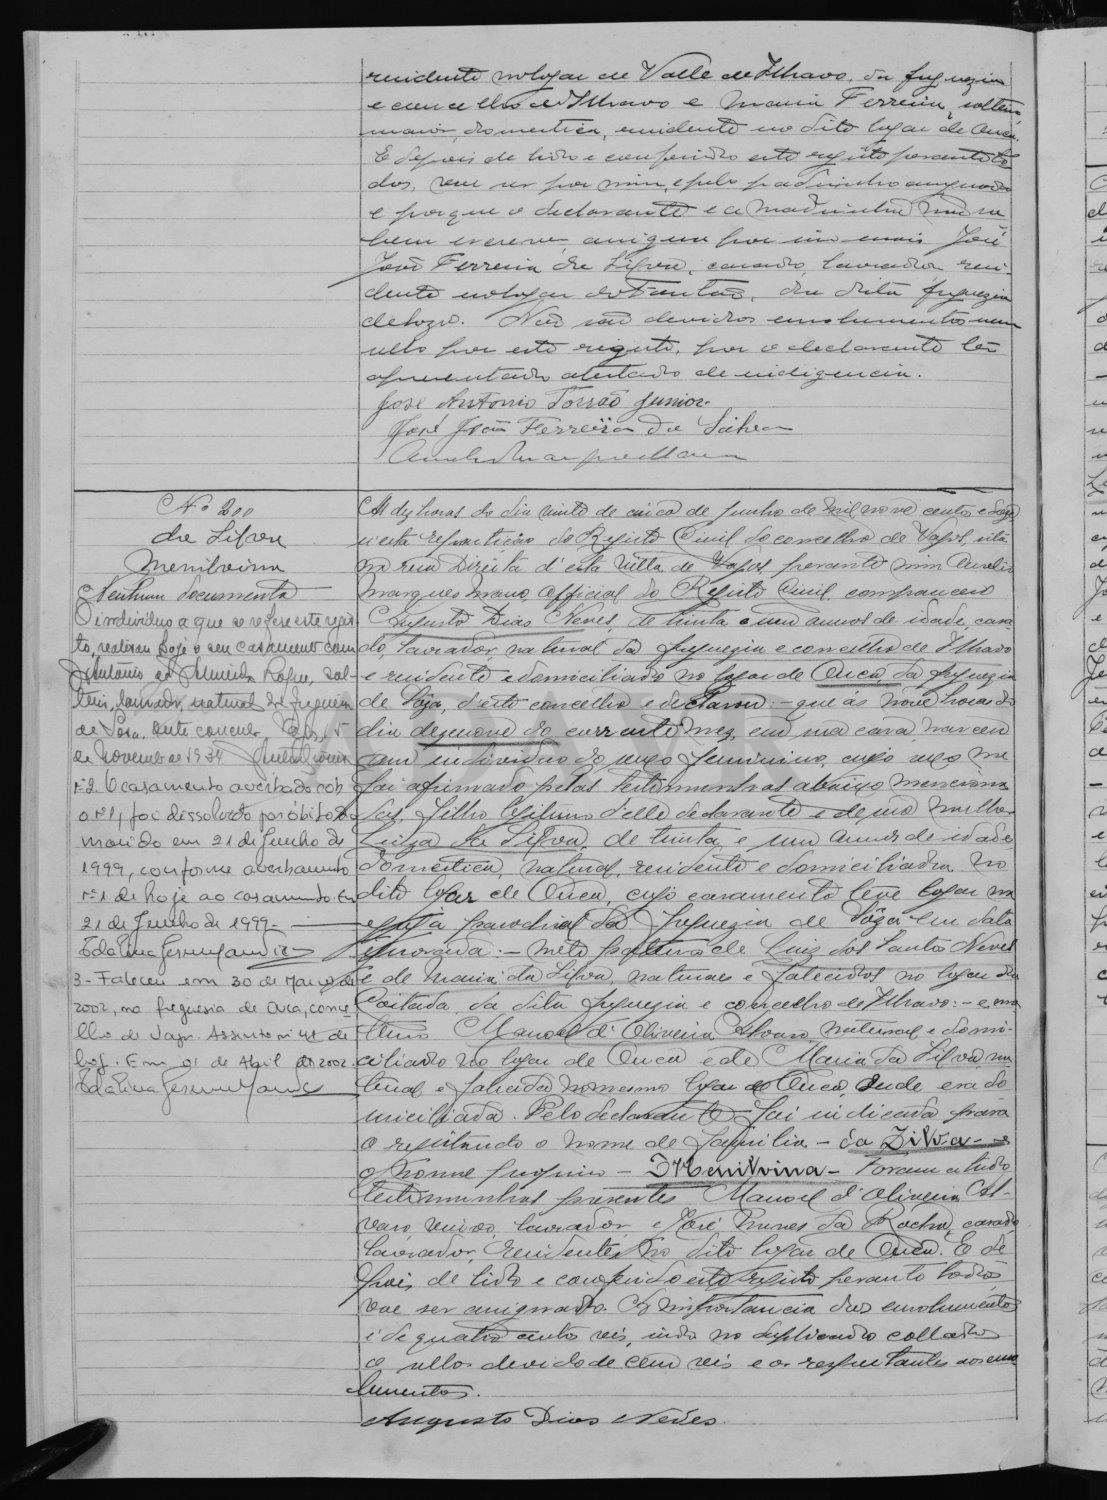 residente no logar de Valle de Ilhavo, da freguezia
e concelho de Ilhavo e Maria Ferreira, solteira,
maior, domestica, residente no dito logar de Ouca.
E depois de lido e conferido este registo perante to-
dos, vae ser por mim, e pelo padrinho assignado
e porque o declarante e a madrinha não sa-
bem escrever, assigna por
José João Ferreira da Silva, casado, lavrador, resi-
dente no logar da dita freguezia
de Soza. Não são devidos emolumentos nem
sello por este registo, por o declarante ter
apresentado atestado de indigencia.
José Antonio Torrão Junior.
José João Ferreira da Silva
Nº 200
da Silva
Menilvina
Nenhum documento
O individuo a que se refere este regis-
to, realizou hoje o seu casamento com
Antonio de Almeida Roque, sol-
teiro, lavrador, natural da freguesia
de Sosa, deste concelho. Vagos, 5
de Novembro de 1934
Nº2. O casamento averbado sob
o nº1, foi dissolvido por óbito do
marido em 21 de Junho de
1999, conforme averbamento
nº1 de hoje ao casamento. Em
21 de Junho de 1999.-
3- Faleceu em 30 de Março de
2002, na freguesia de Ouca, conce-
lho de Vagos. Assento nº 41 de
hoje. Em 01 de Abril de 2002.
Ás dez horas do dia vinte de cinco de Junho de mil nove centos e doze
n'esta repartição do Registo Civil do concelho de Vagos, sita
na rua Direita d'esta villa de Vagos, perante mim Aurelio
Marques Mano, official do Registo Civil, compareceu
Augusto Dias Neves, de trinta e um annos de idade, casa-
do, lavrador, natural da freguezia e concelho de Ilhavo
e residente e domiciliado no logar de Ouca, da freguezia
de Soza, d'este concelho e declarou:- que ás nove horas do
dia dezenove do corrente mez, em sua casa, nasceu
um individuo do sexo femenino, cujo sexo me
foi afirmado pelas testemunhas abaixo menciona-
das, filho legitimo d'elle declarante e de sua mulher
Luiza da Silva, de trinta e um annos de idade,
domestica, natural, residente e domiciliada no
dito logar de Ouca, cujo casamento teve logar na
egreja parochial da freguezia de Soza em data
ignorada:- neto paterno de Luiz dos Santos Neves
e de Maria da Silva, naturaes e falecidos no logar da
Coitada, da dita freguezia e concelho de Ilhavo:- e ma-
terno Manoel d'Oliveira Alvaro, natural e domi-
ciliado no logar de Ouca e de Maria da Silva, na-
tural e falecida no mesmo logar de Ouca, onde era do-
miciliada. Pelo declarante foi indicada para
o registando o nome de familia - da Silva - e
o nome proprio - Menilvina - Foram a tudo
testemunhas presentes Manoel d'Oliveira Al-
varo, viuvo, lavrador, e José Nunes da Rocha, casado,
lavrador, residentes no dito logar de Ouca. E de-
pois de lido e conferido este registo perante todos,
vae ser assignado. A importancia dos emolumentos
é de quatro centos reis, indo no duplicado collado
o sello devido de cem reis e os respeitantes aos emo-
lumentos.
Augusto Dias Neves.